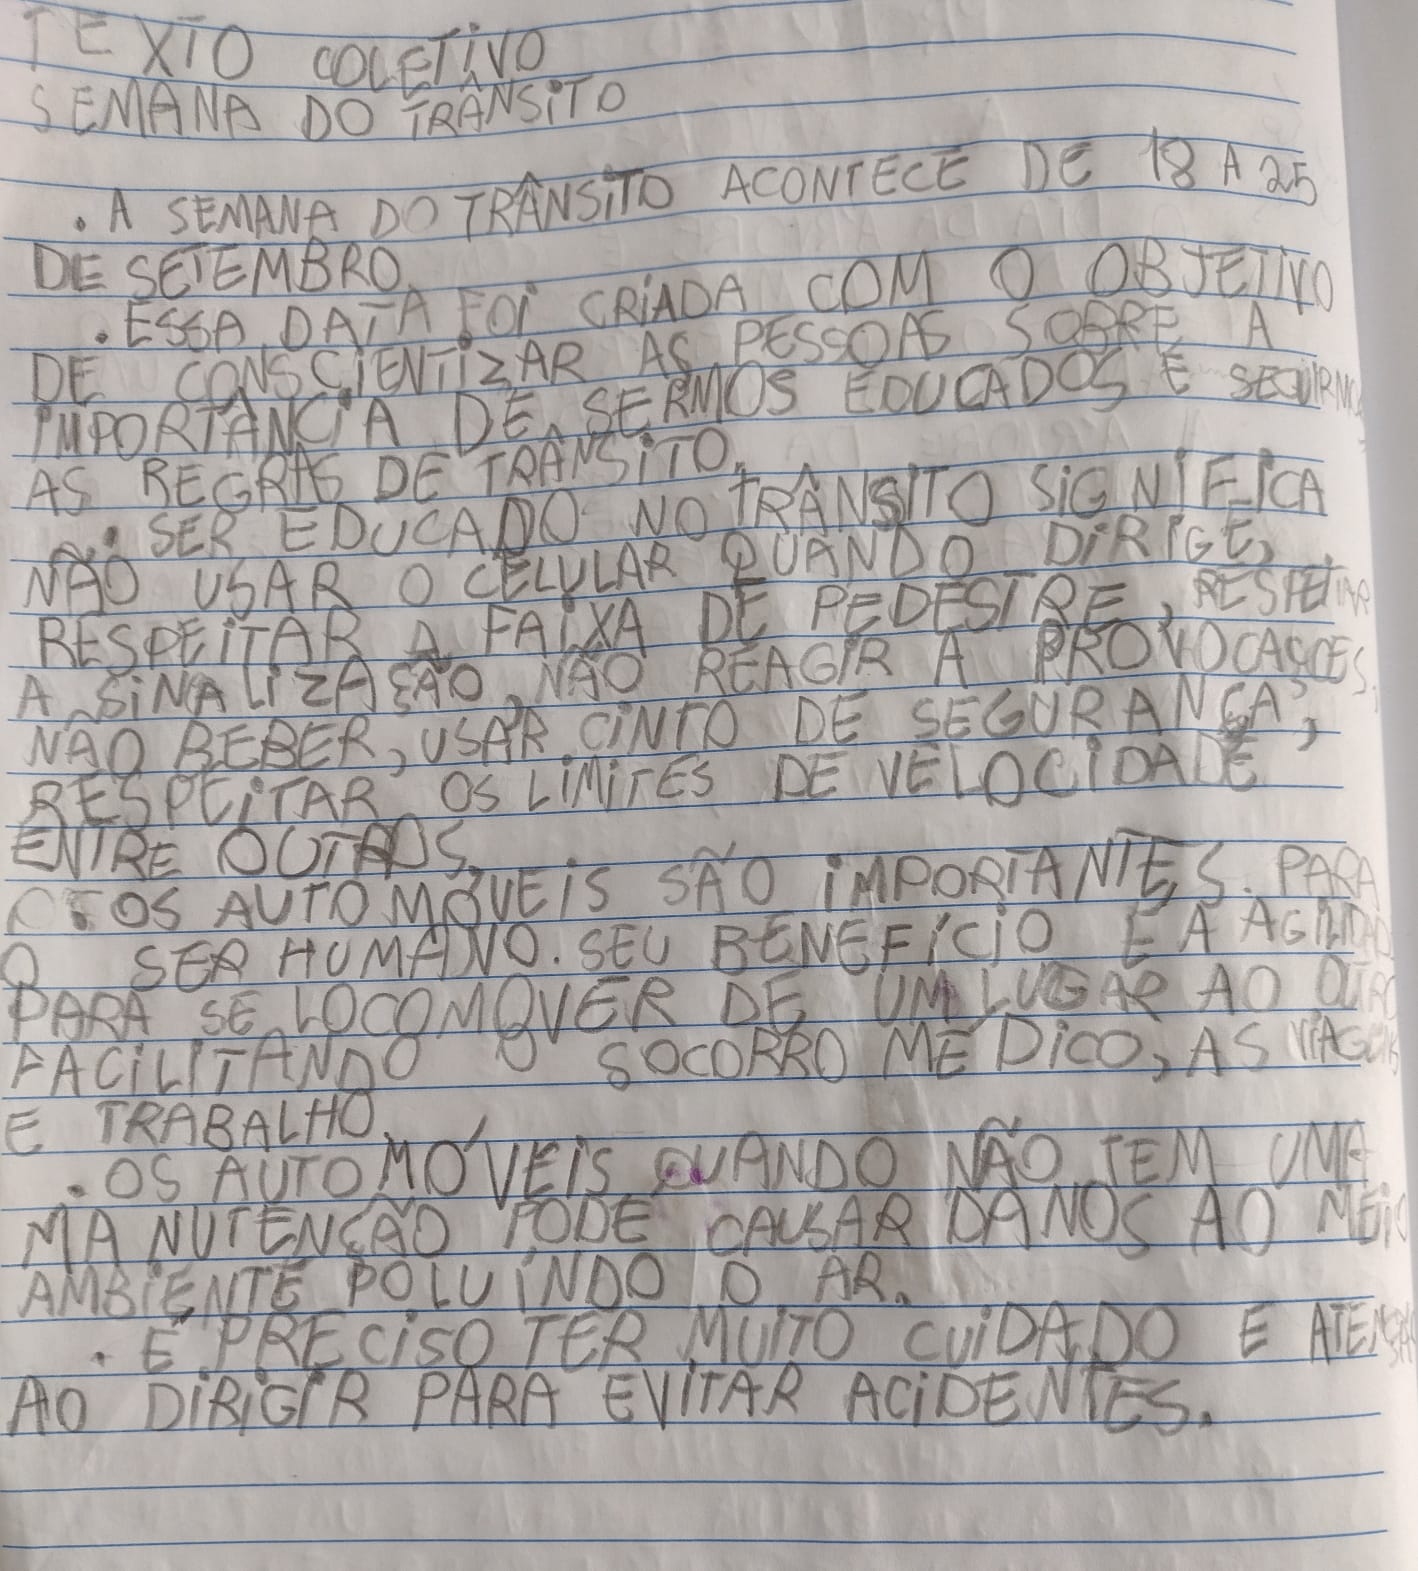 TEXTO COLETIVO
SEMANA DO TRÂNSITO
. A SEMANA DO TRÂNSITO ACONTECE DE 18 A 25
DE SETEMBRO.
. ESSA DATA FOI CRIADA COM O OBJETIVO
DE CONSCIENTIZAR AS PESSOAS SOBRE A
IMPORTÂNCIA DE SERMOS EDUCADOS E SEGUIRMOS
AS REGRAS DE TRÂNSITO.
. SER EDUCADO NO TRÂNSITO SIGNIFICA
NÃO USAR O CELULAR QUANDO DIRIGE,
RESPEITAR A FAIXA DE PEDESTRE, RESPEITAR
A SINALIZAÇÃO, NÃO REAGIR A PROVOCAÇÕES,
NÃO BEBER, USAR CINTO DE SEGURANÇA,
RESPEITAR OS LIMITES DE VELOCIDADE
ENTRE OUTROS.
. OS AUTOMÓVEIS SÃO IMPORTANTES PARA
O SER HUMANO. SEU BENEFÍCIO É A
PARA SE LOCOMOVER DE UM LUGAR AO OUTRO
FACILITANDO O SOCORRO MÉDICO, AS VIAGENS
E TRABALHO.
. OS AUTOMÓVEIS QUANDO NÃO TEM UMA
MANUTENÇÃO PODE CAUSAR DANOS AO MEIO
AMBIENTE POLUINDO O AR.
. É PRECISO TER MUITO CUIDADO E ATENÇÃO
AO DIRIGIR PARA EVITAR ACIDENTES.